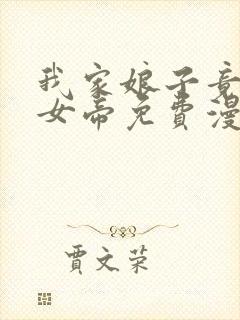 我家娘子竟
女帝免費漫
賈文荣